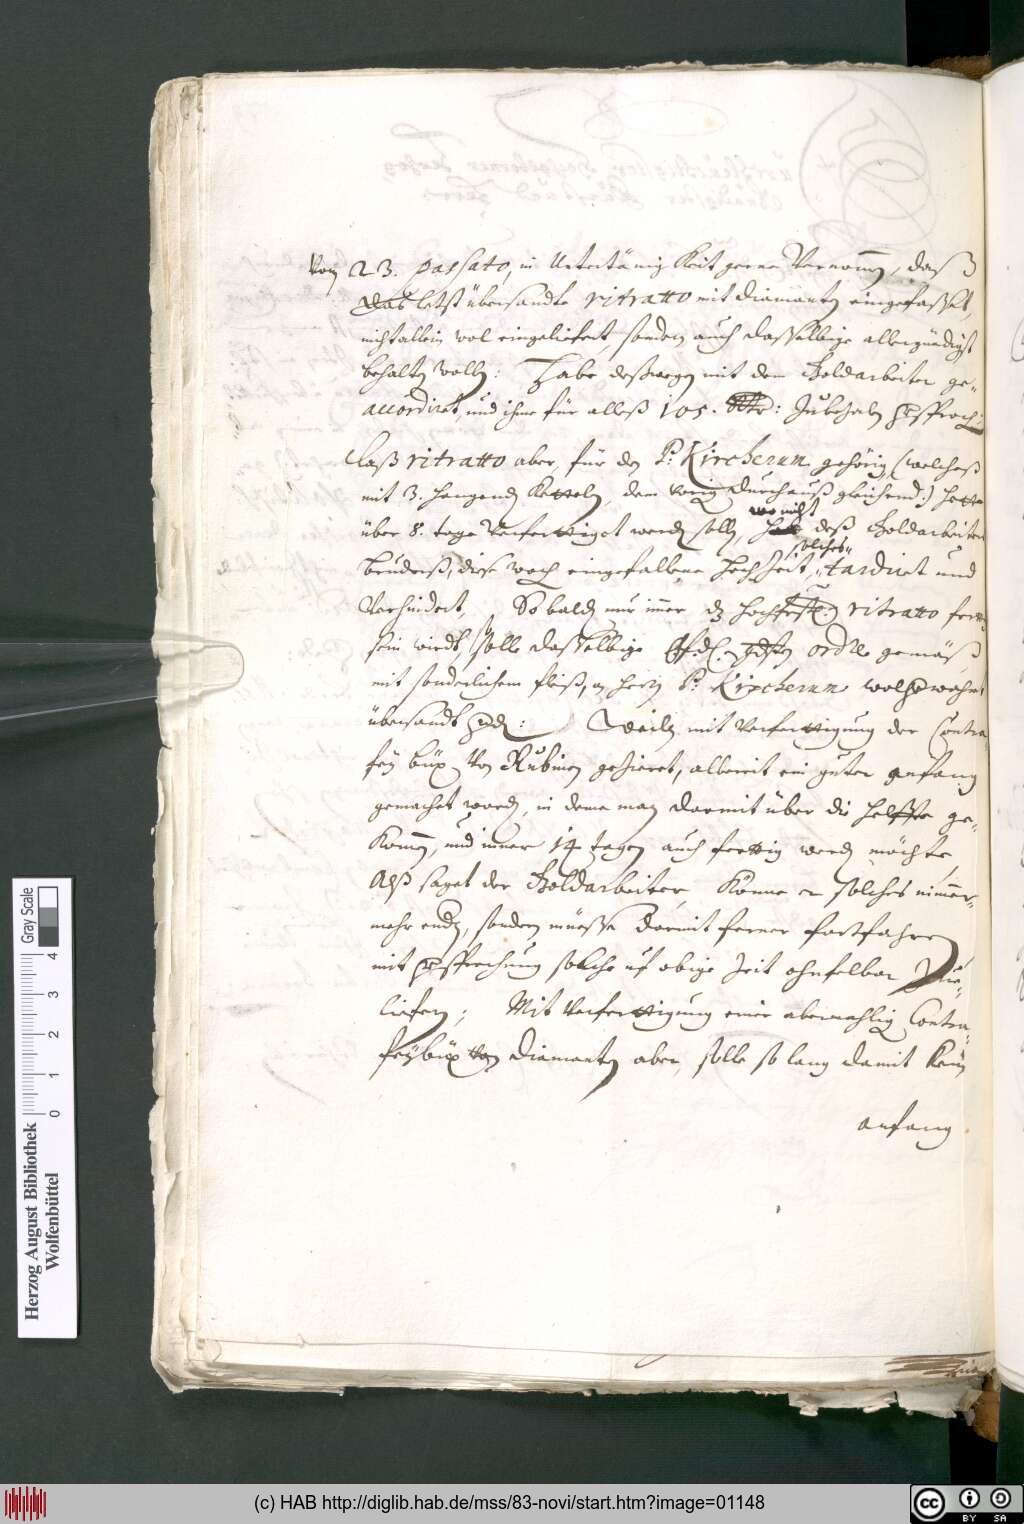 Von 23. passato, in Untertänigkeit gerne Vernom̄en, daß
das letst übersandte ritratto mit diamanten eingefasset,
nicht allein wol eingeliefert sondern auch dasselbige allergnädigst
behalten wollen: Habe deßwegen mit dem Goldarbeiter ge-
accordiret, und ihme für alleß 105. Rtr: Zubezalen versproch:
Daß ritratto aber, für den P: Kircherum gehörig, (welcheß
mit 3. hangenden Kettelen, dem vorigen durchauß gleichend:) hette
über 8. tage Verfertiget werden sollen, wo nicht deß Goldarbeiters
bruderß, diese woch eingefallene hochzeit, solches tardiret und
Verhindert, So balden nur immer dz ritratto fertig
sein wirdt, solle dasselbige ordre gemäß,
mit sonderlichem fleiß, an herrn P: Kircherum wolverwahrt
übersandt werden: Weilen mit Verfertigung der Contra-
fey büx von Rubinen gezieret, albereit ein guter anfang
gemachet worden, in deme man darmit über die helffte ge-
Kom̄en, und inner 14 tagen auch fertig werden möchte,
Alß saget der Goldarbeiter Könne er solches nim̄er-
mehr endern, sondern müesse darmit ferner fortfahren
mit versprechung solche uf obige Zeit ohnfelbar Zue-
liefern; Mit Verfertigung einer abermahligen Contra-
feybüx von Diamanten aber, solle so lang damit Kein
anfang
Herzog August Bibliothek
Wolfenbüttel
0 1 2 3 4
Gray Scale
(c) HAB http://diglib.hab.de/mss/83-novi/start.htm?image=01148
cc BY SA